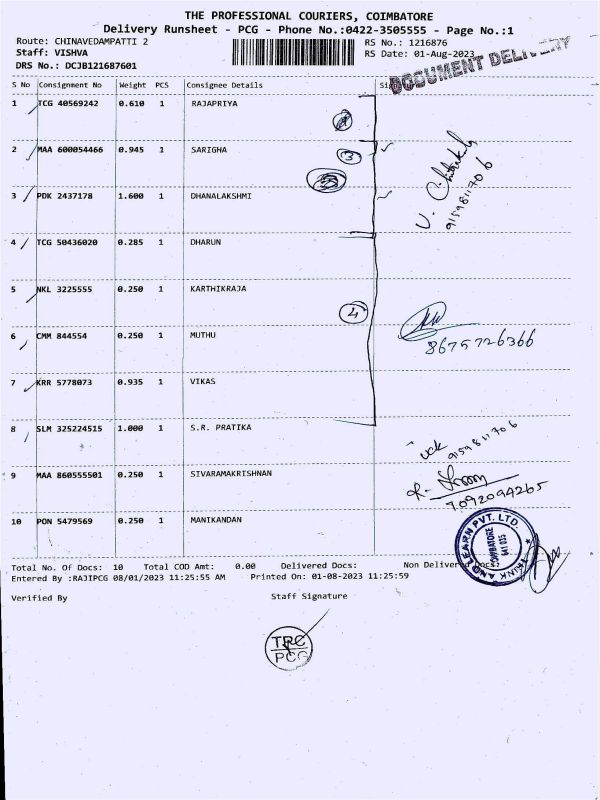 THE PROFESSIONAL COURIERS, COIMBATORE
Delivery Runsheet - PCG - Phone No.:0422-3505555 - Page No.:1
Route: CHINAVEDAMPATTI 2
RS No.: 1216876
Staff: VISHVA
RS Date: 01-Aug-2023
DRS No.: DCJB121687601
DOCUMENT DELIVERY
S No Consignment No Weight PCS Consignee Details
1 TCG 40569242 0.610 1 RAJAPRIYA
2 MAA 600054466 0.945 1 SARIGHA
3
3 PDK 2437178 1.600 1 DHANALAKSHMI
U.
9159811706
4 TCG 50436020 0.285 1 DHARUN
5 NKL 3225555 0.250 1 KARTHIKRAJA
4
6 CMM 844554 0.250 1 MUTHU
8675726366
7 KRR 5778073 0.935 1 VIKAS
8 SLM 325224515 1.000 1 S.R. PRATIKA
9159811706
9 MAA 860555501 0.250 1 SIVARAMAKRISHNAN
7092094265
10 PON 5479569 0.250 1 MANIKANDAN
THINK AND LEARN PVT. LTD.
COIMBATORE
641 035
Total No. Of Docs: 10 Total COD Amt: 0.00 Delivered Docs: Non Delivered Docs:
Entered By :RAJIPCG 08/01/2023 11:25:55 AM Printed On: 01-08-2023 11:25:59
Verified By Staff Signature
TPC
PCG